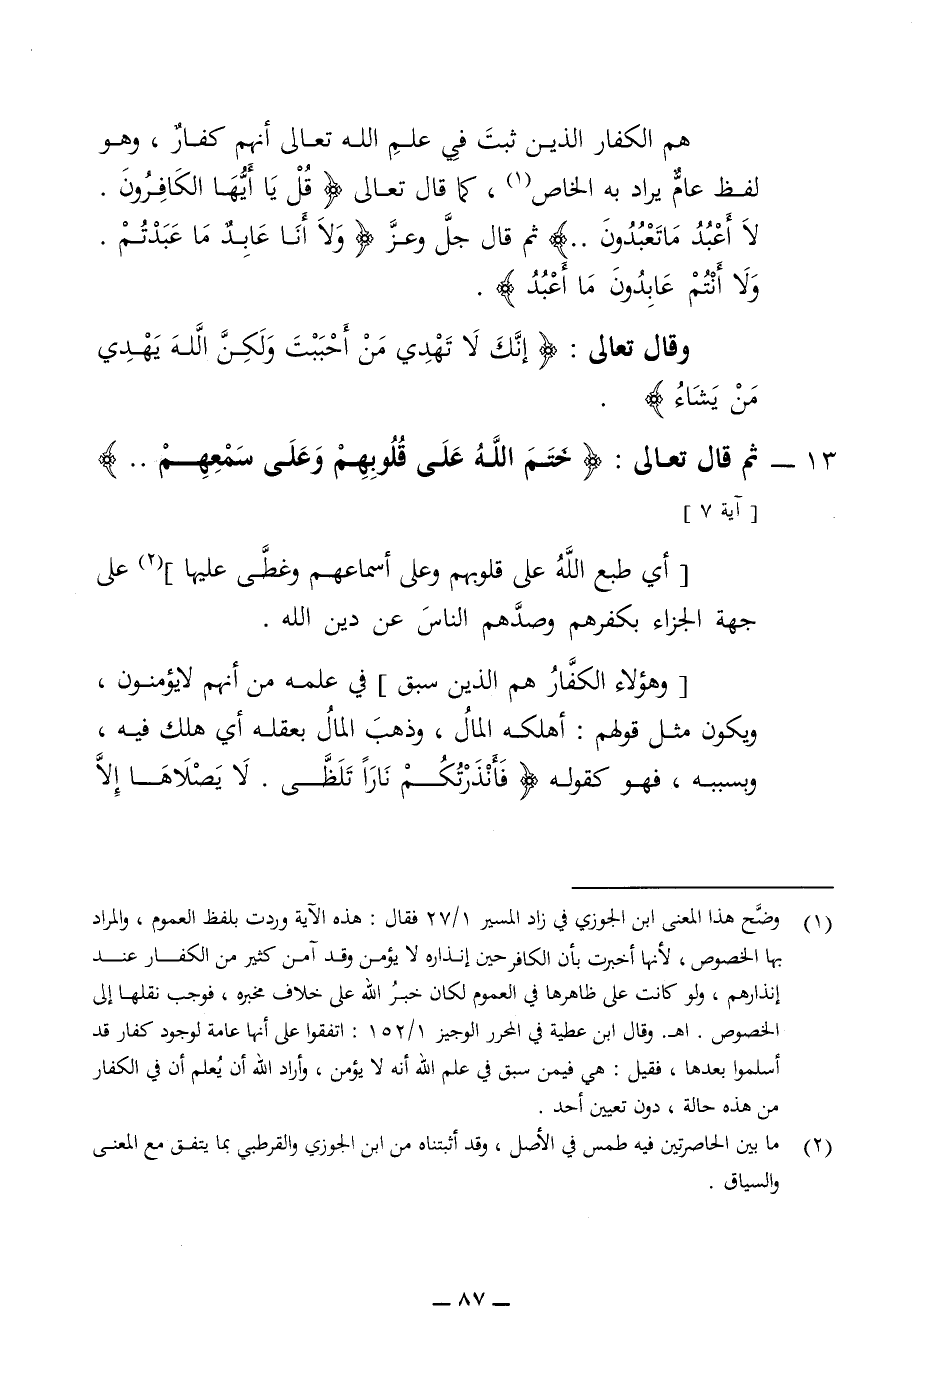 هم الكفار الذين ثبتَ فِي علمِ الله تعالى أنهم كفارٌ ، وهو
لفظ عامٌّ يراد به الخاص(١) ، كما قال تعالى ﴿ قُلْ يَا أَيُّهَا الكَافِرُونَ .
لاَ أَعْبُدُ مَاتَعْبُدُونَ ..﴾ ثم قال جلَّ وعزَّ ﴿ وَلاَ أَنَا عَابِدٌ مَا عَبَدْتُمْ .
وَلَا أَنْتُمْ عَابِدُونَ مَا أَعْبُدُ ﴾ .
وقال تعالى : ﴿ إِنَّكَ لَا تَهْدِي مَنْ أَحْبَبْتَ وَلَكِنَّ اللَّهَ يَهْدِي
مَنْ يَشَاءُ ﴾ .
١٣ ــ ثم قال تعالى : ﴿ خَتَمَ اللَّهُ عَلَى قُلُوبِهِمْ وَعَلَى سَمْعِهِمْ .. ﴾
[ آية ٧ ]
[ أي طبع اللَّهُ على قلوبهم وعلى أسماعهم وغطَّى عليها ](٢) على
جهة الجزاء بكفرهم وصدَّهم الناسَ عن دين الله .
[ وهؤلاء الكفَّارُ هم الذين سبق ] في علمه من أنهم لايؤمنون ،
ويكون مثل قولهم : أهلكه المالُ ، وذهبَ المالُ بعقله أي هلك فيه ،
وبسببه ، فهو كقوله ﴿ فَأَنْذَرْتُكُمْ نَارَاً تَلَظَّى . لَا يَصْلَاهَا إِلاَّ
(١) وضَّح هذا المعنى ابن الجوزي في زاد المسير ٢٧/١ فقال : هذه الآية وردت بلفظ العموم ، والمراد
بها الخصوص ، لأنها أخبرت بأن الكافرحين إنذاره لا يؤمن وقد آمن كثير من الكفار عند
إنذارهم ، ولو كانت على ظاهرها في العموم لكان خبرُ الله على خلاف مخبره ، فوجب نقلها إلى
الخصوص . اهـ. وقال ابن عطية في المحرر الوجيز ١٥٢/١ : اتفقوا على أنها عامة لوجود كفار قد
أسلموا بعدها ، فقيل : هي فيمن سبق في علم الله أنه لا يؤمن ، وأراد الله أن يُعلم أن في الكفار
من هذه حالة ، دون تعيين أحد .
(٢) ما بين الحاصرتين فيه طمس في الأصل ، وقد أثبتناه من ابن الجوزي والقرطبي بما يتفق مع المعنى
والسياق .
ــ ٨٧ ــ